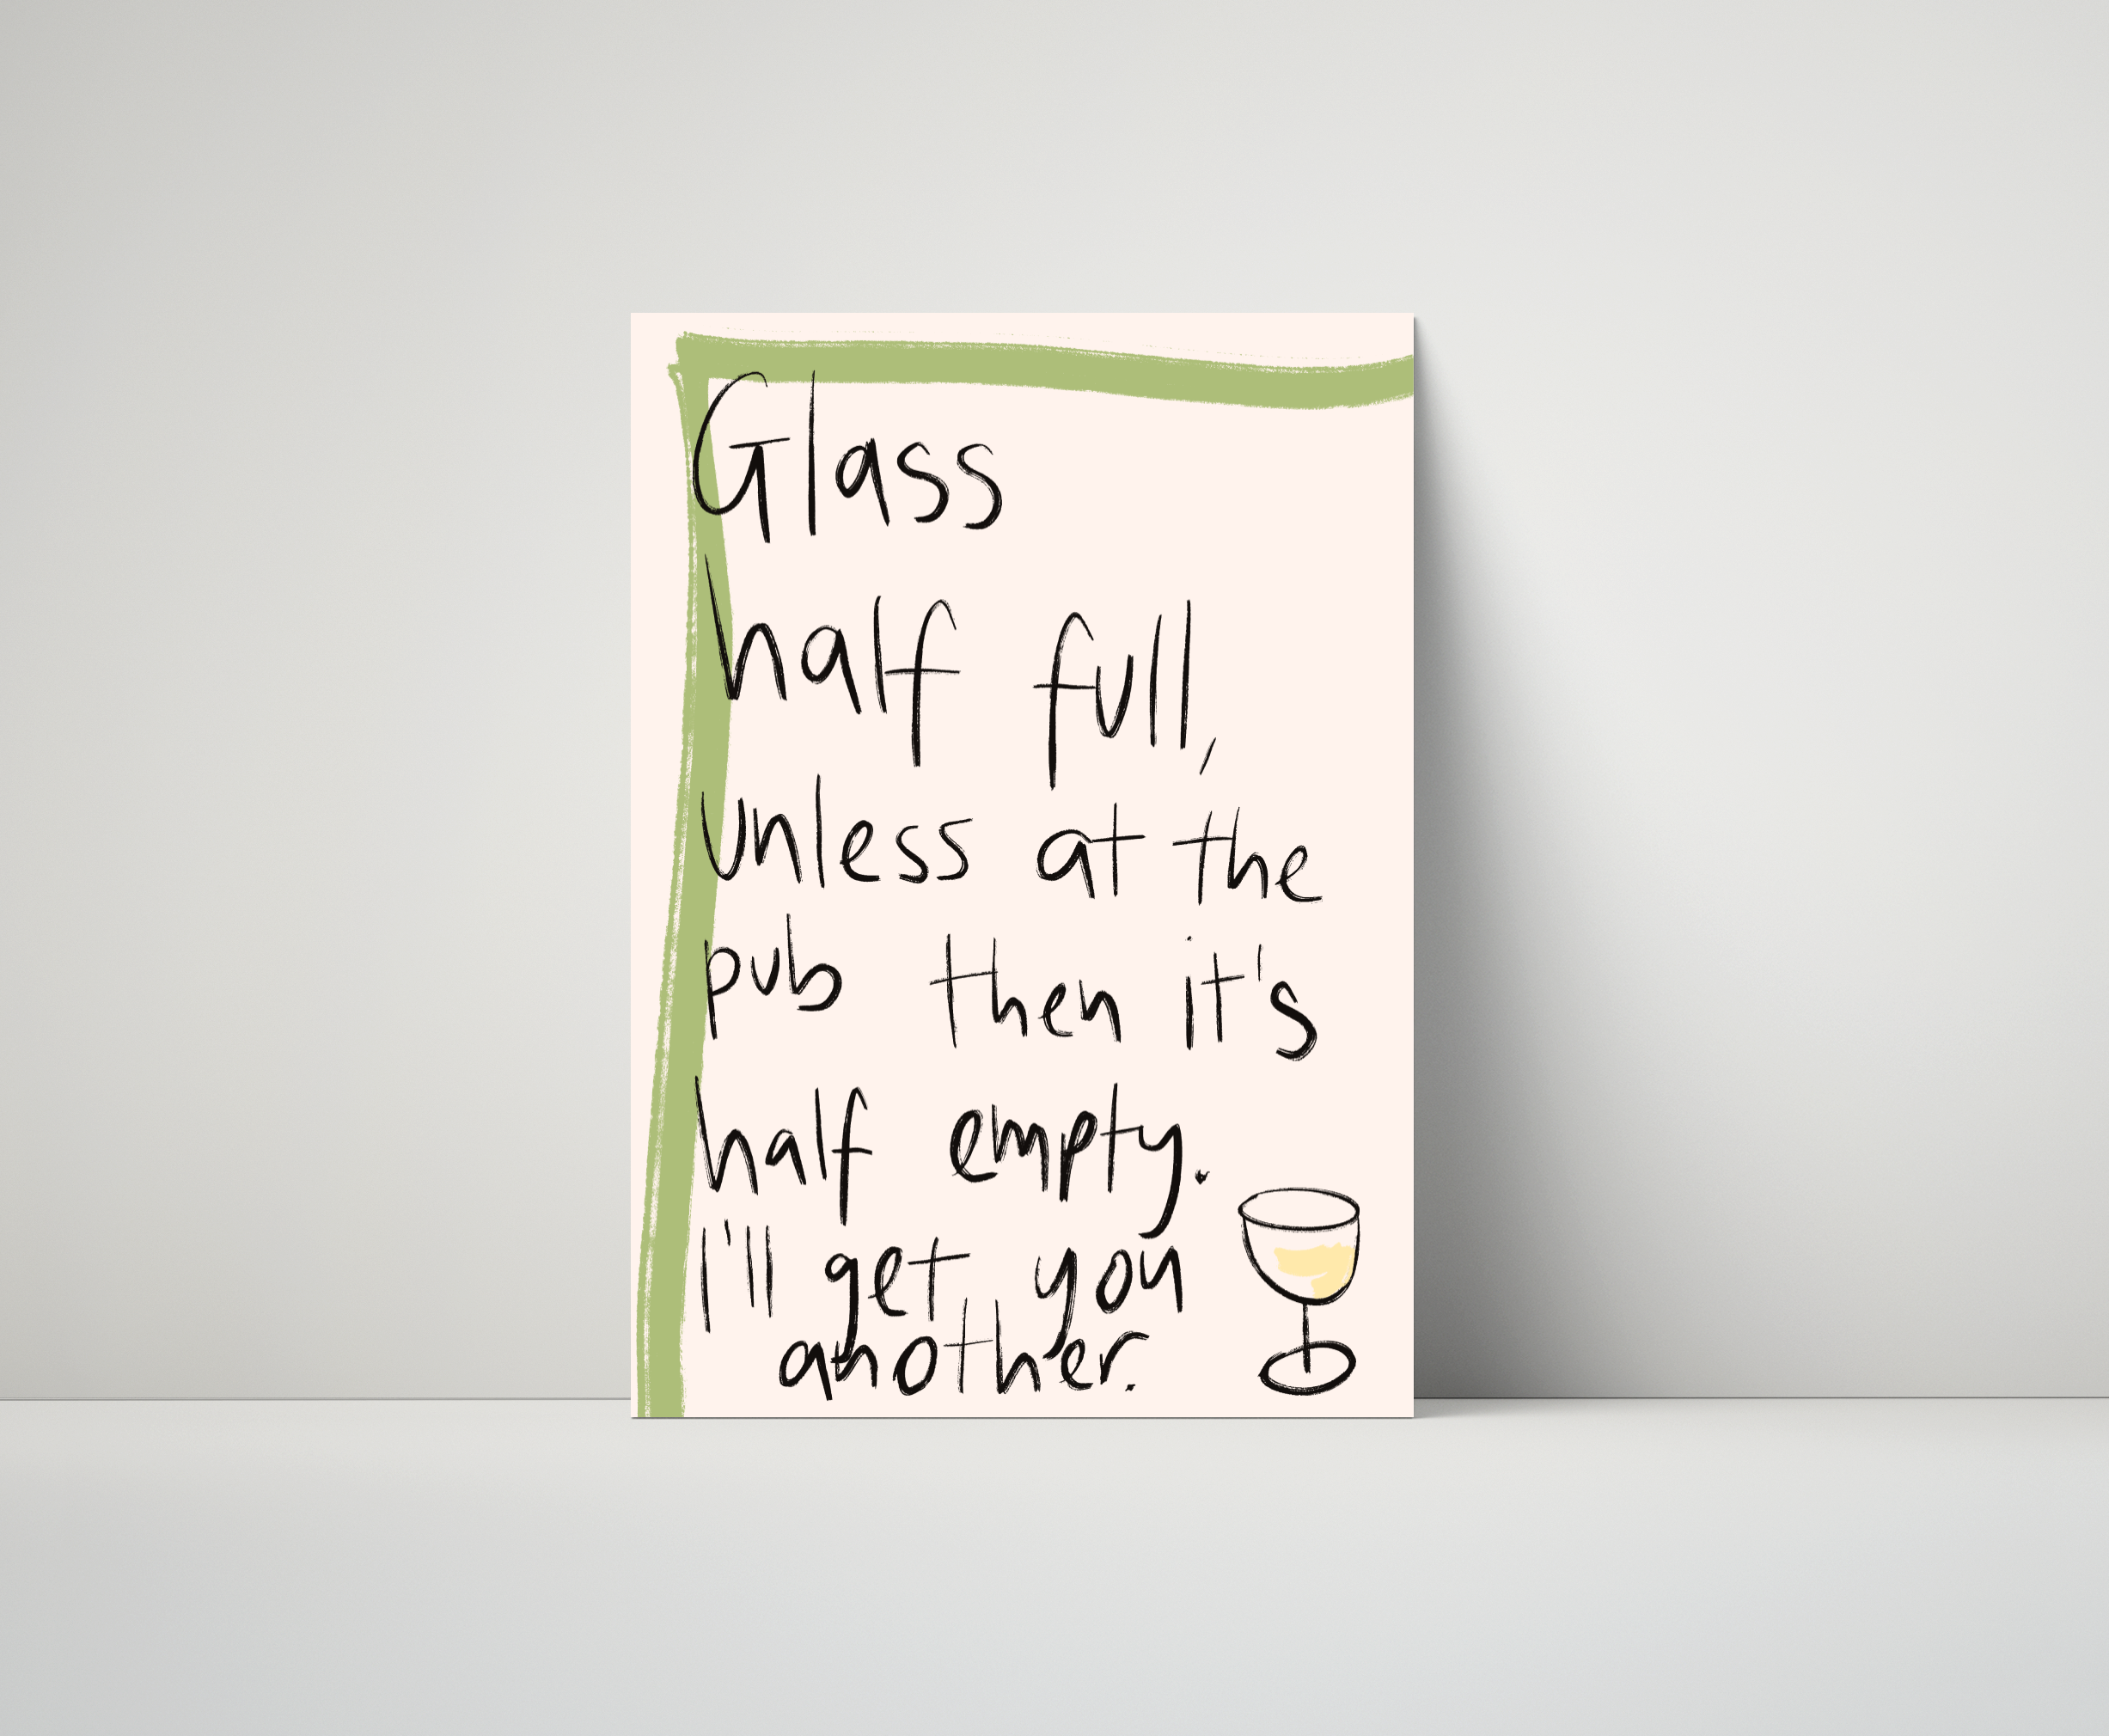 Glass
half full,
unless at the
pub then it's
half empty.
I'll get you
another.